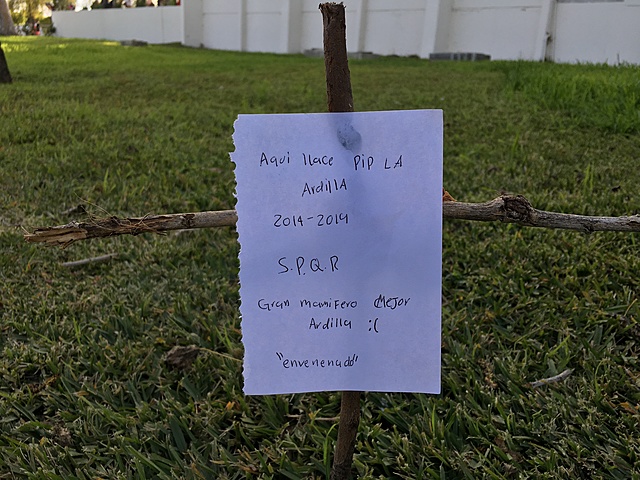 Aqui llace PiP LA
ArdillA
2014-2019
S.P.Q.R
Gran mamifero Mejor
Ardilla :(
"envenenado"